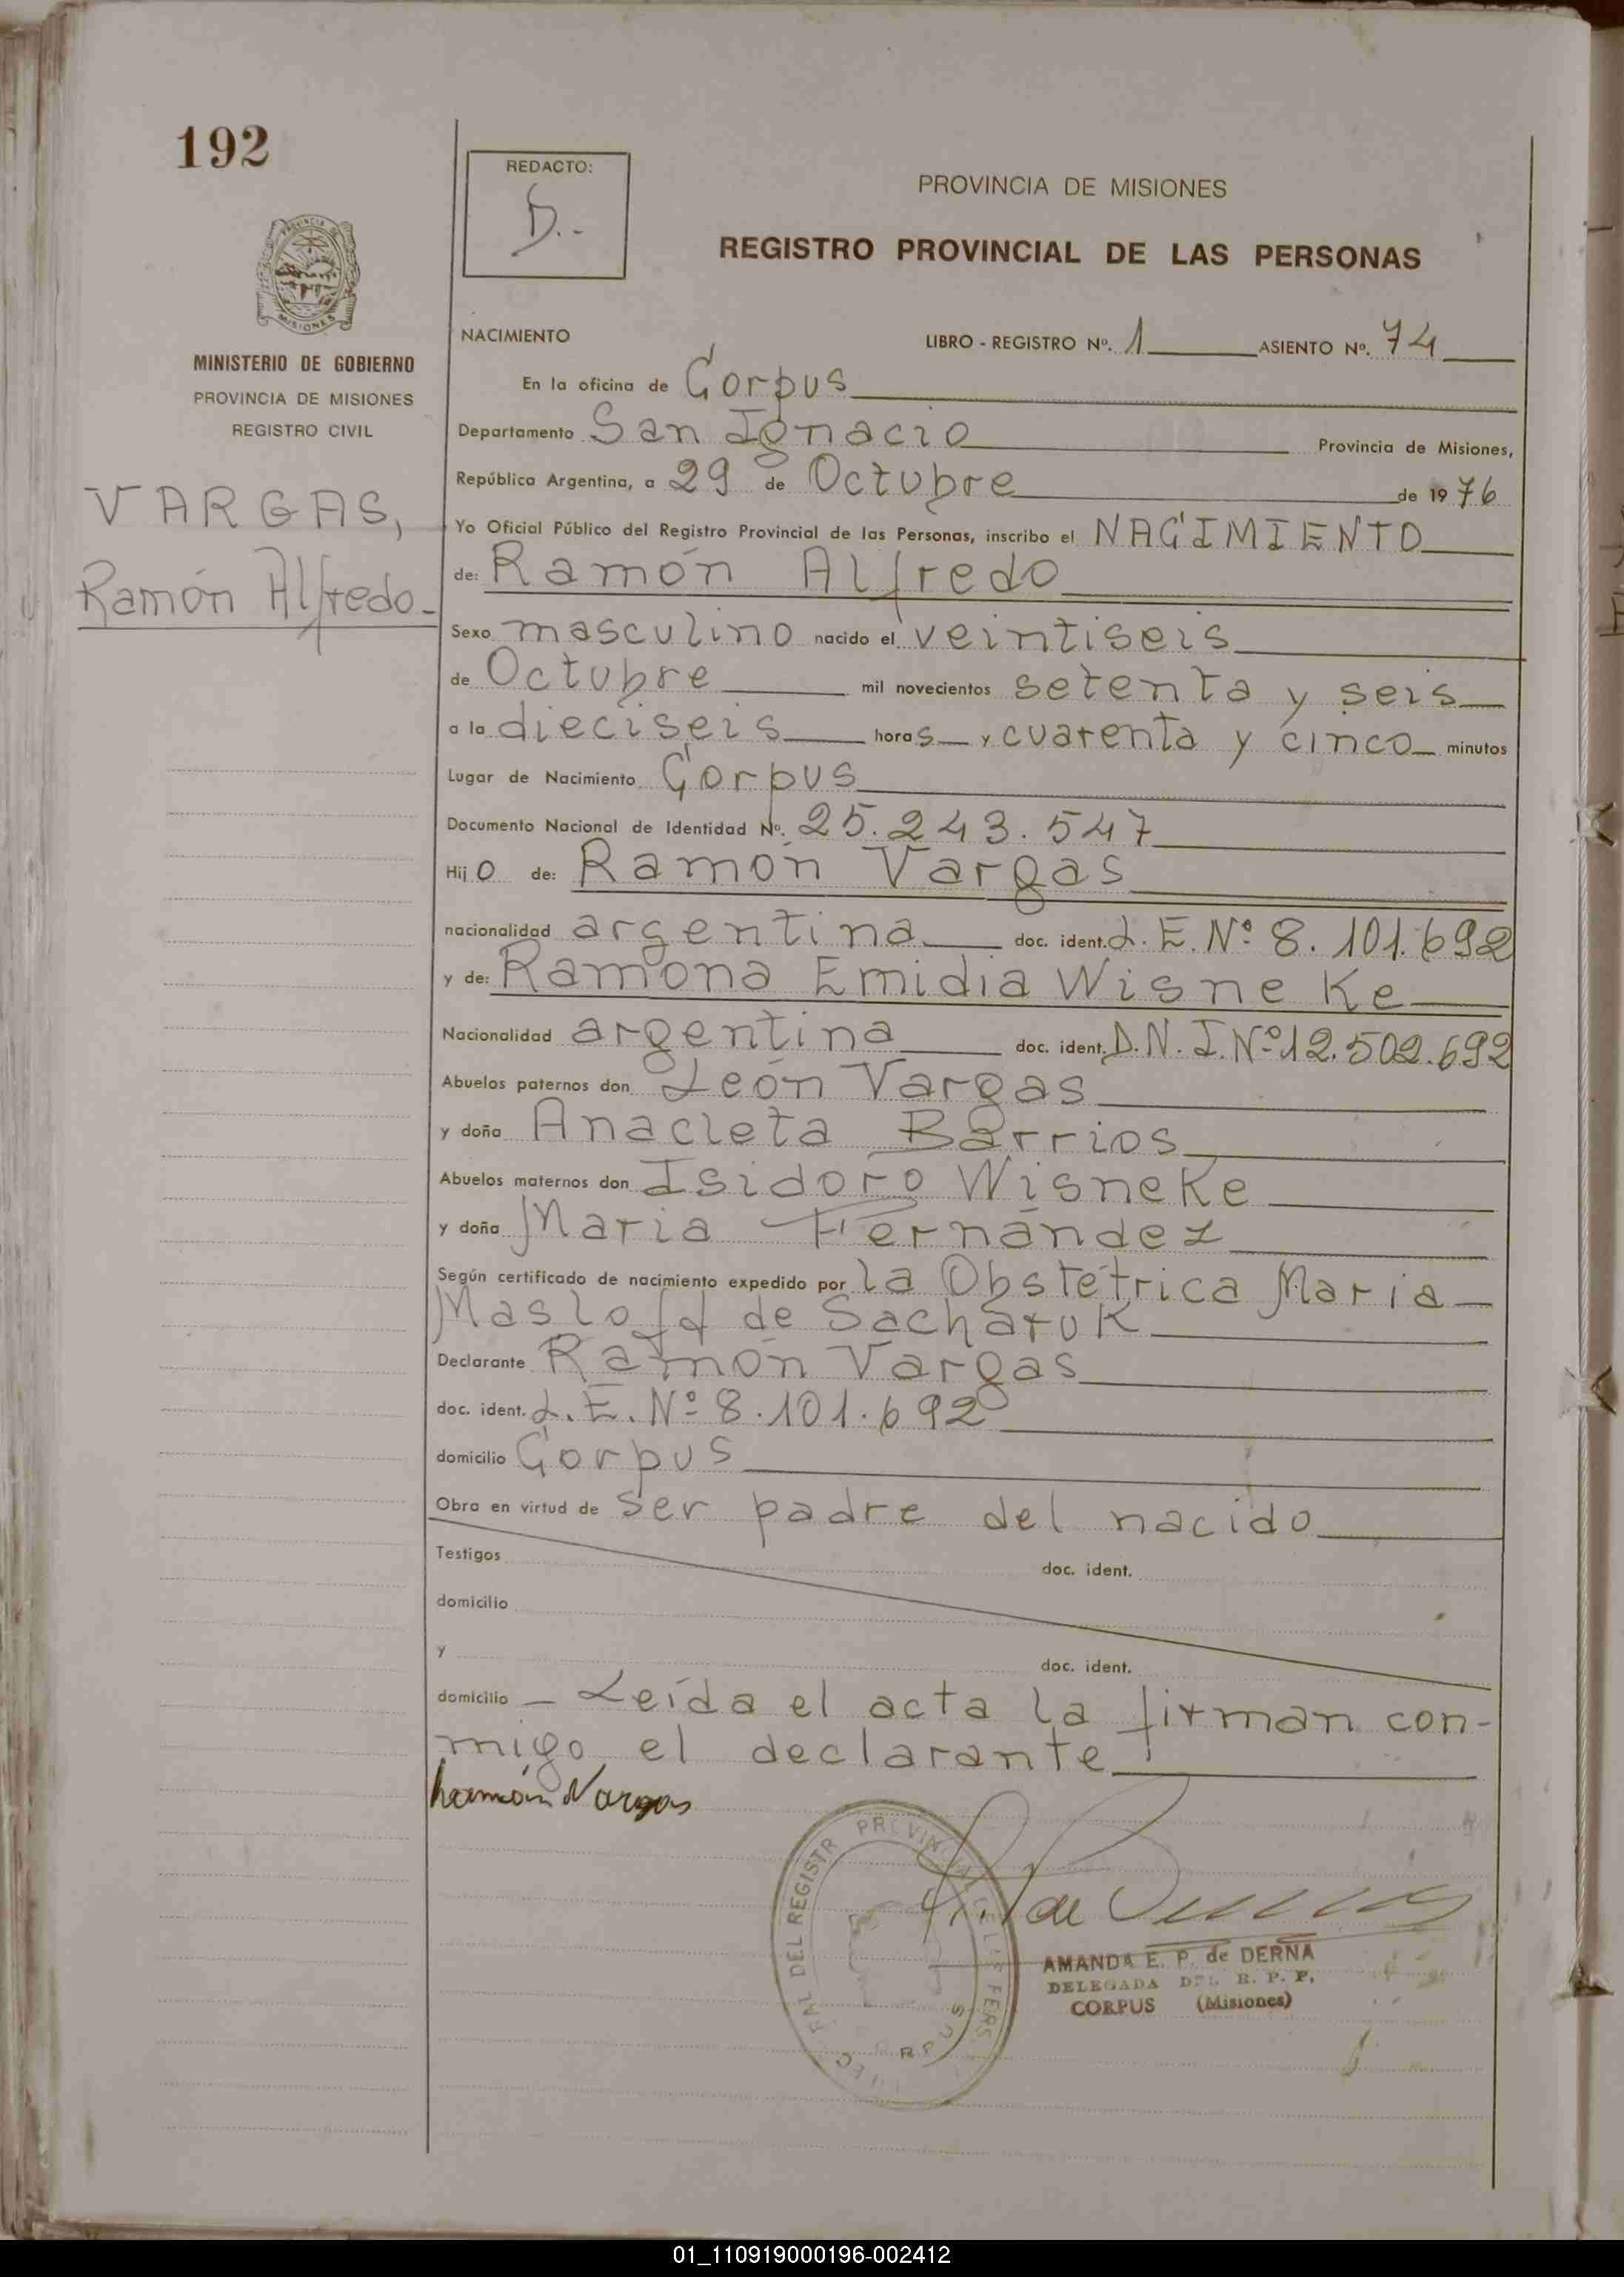 192
REDACTO:
D.-
PROVINCIA DE MISIONES
REGISTRO PROVINCIAL DE LAS PERSONAS
MISIONES
MINISTERIO DE GOBIERNO
PROVINCIA DE MISIONES
REGISTRO CIVIL
VARGAS,
Ramón Alfredo-
NACIMIENTO LIBRO - REGISTRO Nº. 1 ASIENTO Nº. 74
En la oficina de Corpus
Departamento San Ignacio Provincia de Misiones,
República Argentina, a 29 de Octubre de 1976
Yo Oficial Público del Registro Provincial de las Personas, inscribo el NACIMIENTO
de: Ramón Alfredo
Sexo masculino nacido el veintiseis
de Octubre mil novecientos setenta y seis
a la dieciseis horas y cuarenta y cinco minutos
Lugar de Nacimiento Corpus
Documento Nacional de Identidad Nº. 25.243.547
Hijo de: Ramón Vargas
nacionalidad argentina doc. ident. L.E.Nº 8.101.692
y de: Ramona Emidia Wisneke
Nacionalidad argentina doc. ident. D.N.I.Nº 12.502.692
Abuelos paternos don León Vargas
y doña Anacleta Barrios
Abuelos maternos don Isidoro Wisneke
y doña Maria Fernández
Según certificado de nacimiento expedido por la Obstétrica Maria
de Sacharuk
Declarante Ramón Vargas
doc. ident. L.E.Nº 8.101.692
domicilio Corpus
Obra en virtud de ser padre del nacido
Testigos doc. ident.
domicilio
y doc. ident.
domicilio - Leída el acta la firman con-
migo el declarante
Ramón Vargas
AMANDA E. P. de DERNA
DELEGADA DEL R. P. P.
CORPUS (Misiones)
01_110919000196-002412